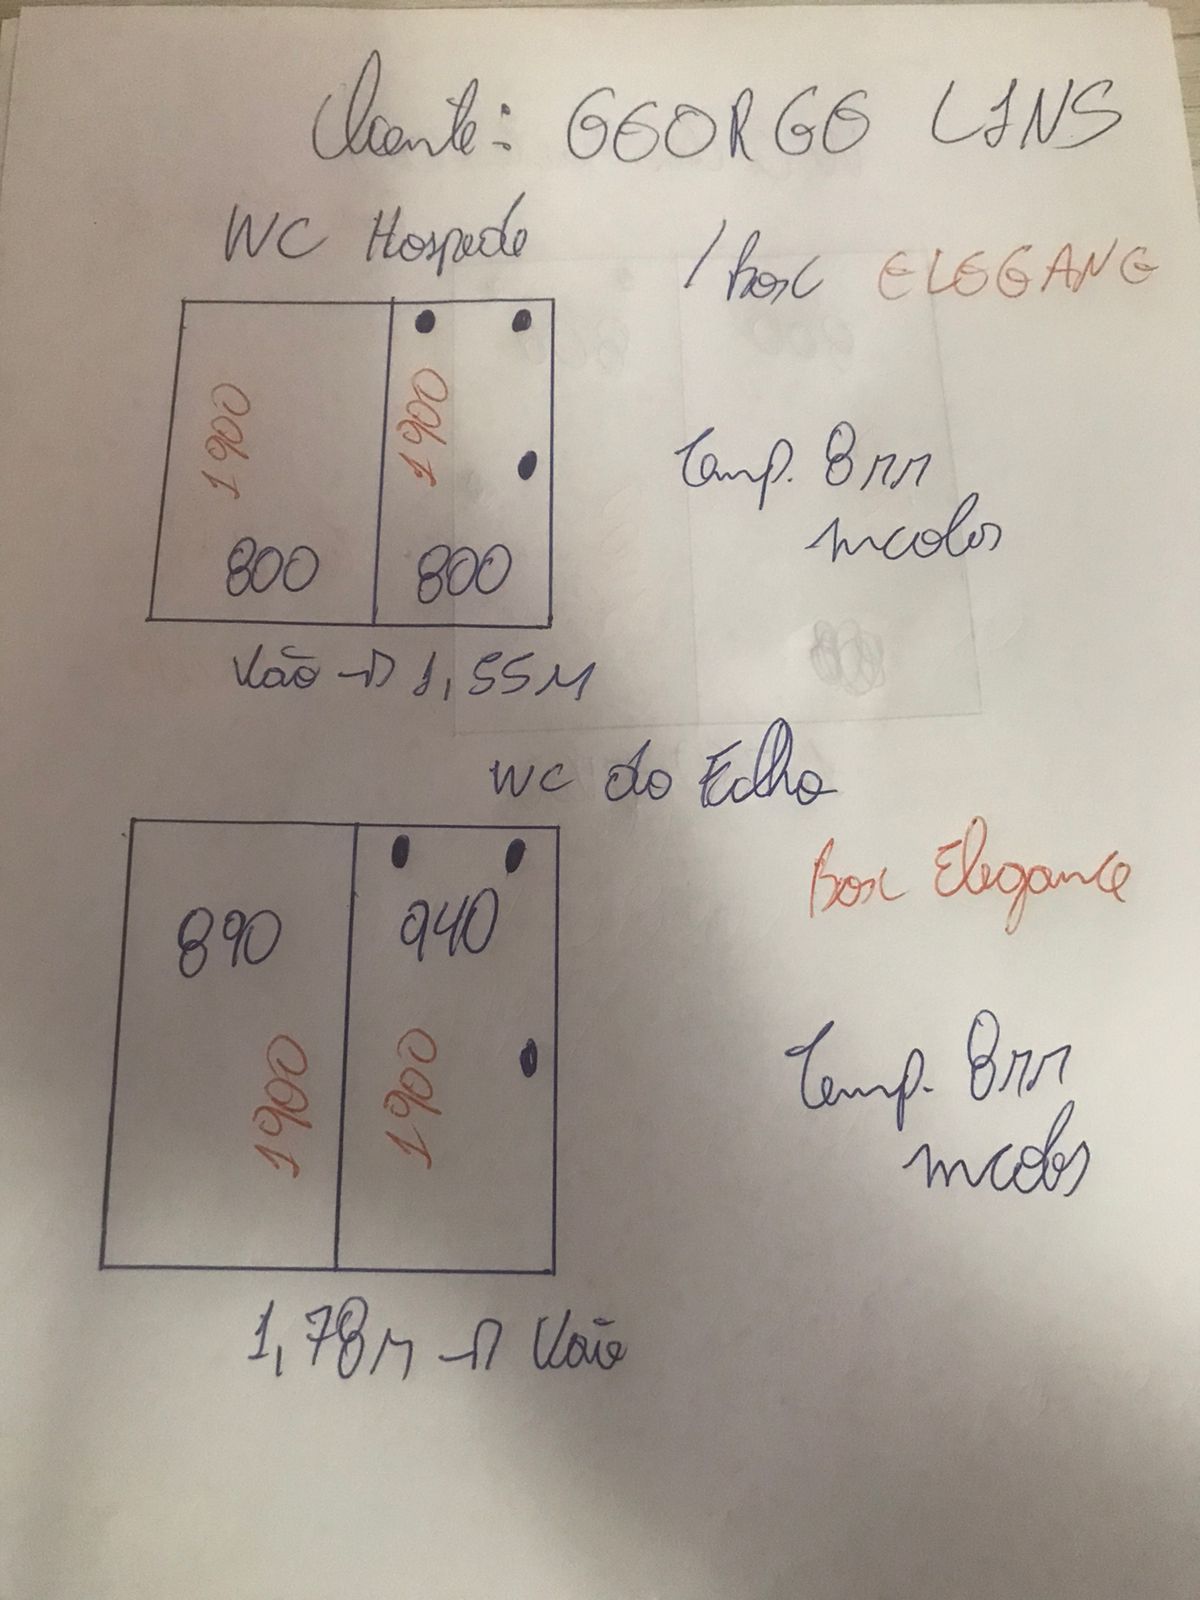 Cliente: GEORGE LINS
WC Hospede
/ Box ELEGANCE
1900
1900
Temp. 8mm
incolor
800
800
Vão → 1,55M
WC do Filho
Box Elegance
890
940
1900
1900
Temp. 8mm
incolor
1,78M → Vão